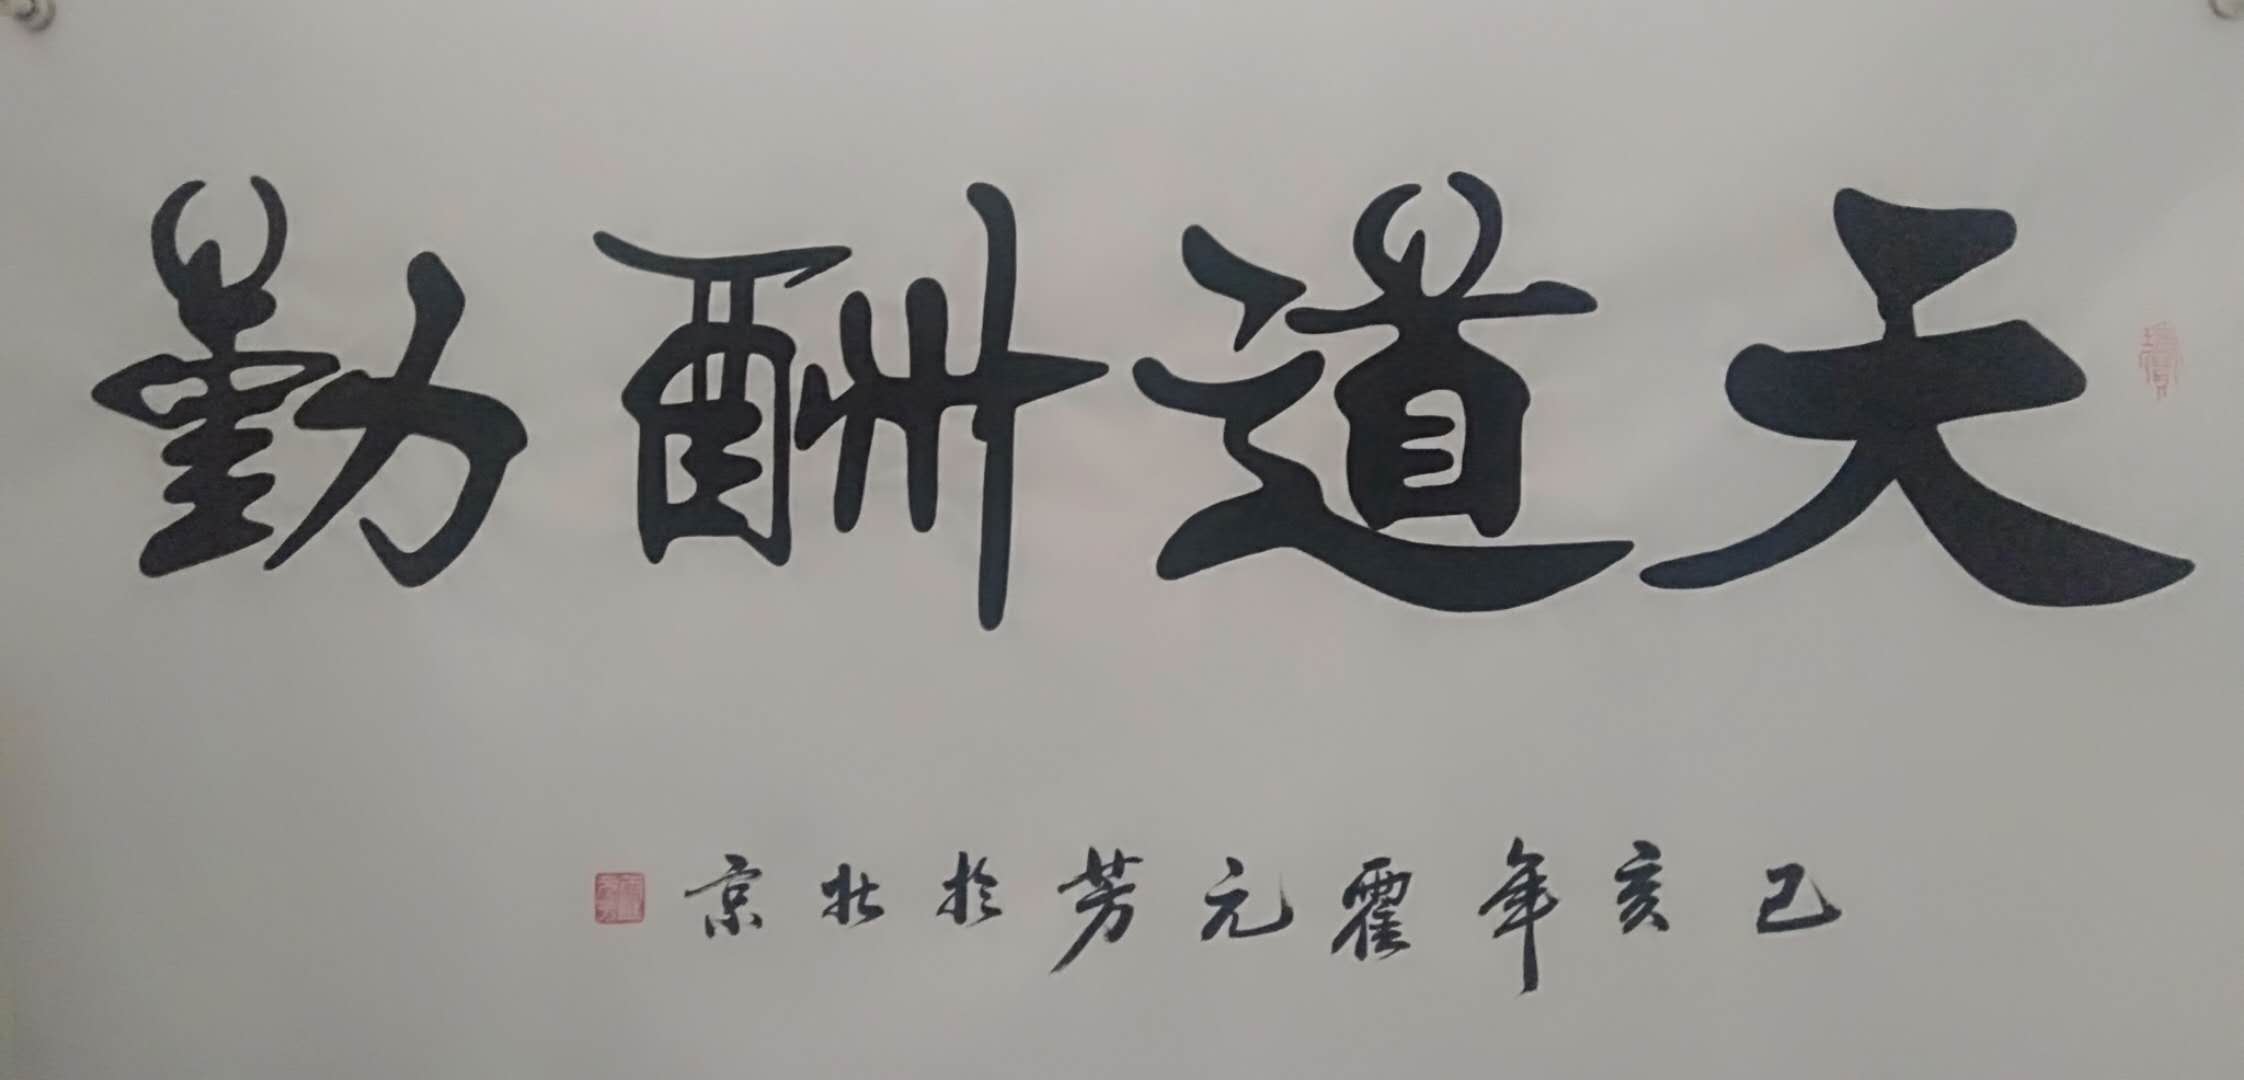 天道酬勤
己亥年霍元芳於北京